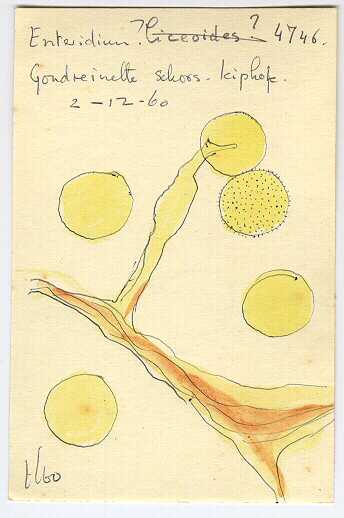 Enteridium? liceoides? 4746.
Gondreinette schors. kiphok.
2-12-60